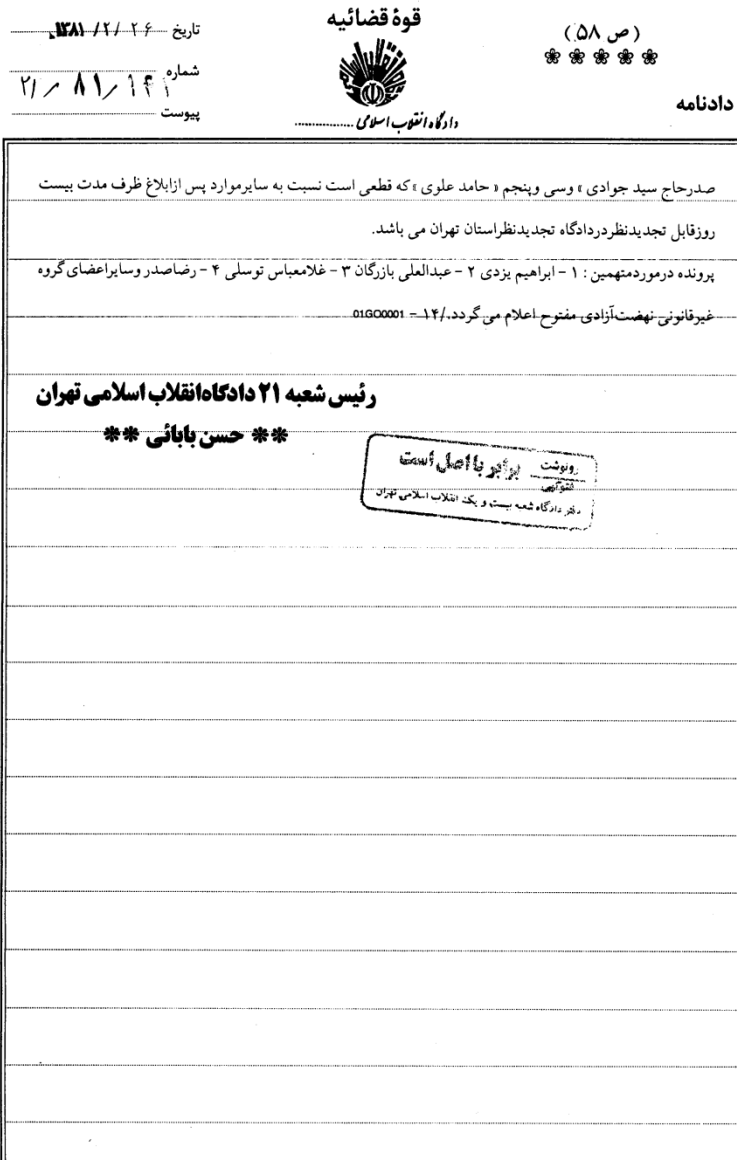 (ص ۵۸)
دادنامه
قوهٔ قضائیه
دادگاه انقلاب اسلامی
تاریخ ۱۳۸۱/۲/۲۶
شماره
پیوست
صدرحاج سید جوادی » وسی وپنجم « حامد علوی » که قطعی است نسبت به سایرموارد پس ازابلاغ ظرف مدت بیست
روزقابل تجدیدنظردردادگاه تجدیدنظراستان تهران می باشد.
پرونده درموردمتهمین : ۱ - ابراهیم یزدی ۲ - عبدالعلی بازرگان ۳ - غلامعباس توسلی ۴ - رضاصدر وسایراعضای گروه
غیرقانونی نهضت‌آزادی مفتوح اعلام می گردد./۱۴ - 01GO0001
رئیس شعبه ۲۱ دادگاه‌انقلاب اسلامی تهران
** حسن بابائی **
رونوشت
فتوکپی
برابر با اصل است
دفتر دادگاه شعبه بیست و یک انقلاب اسلامی تهران